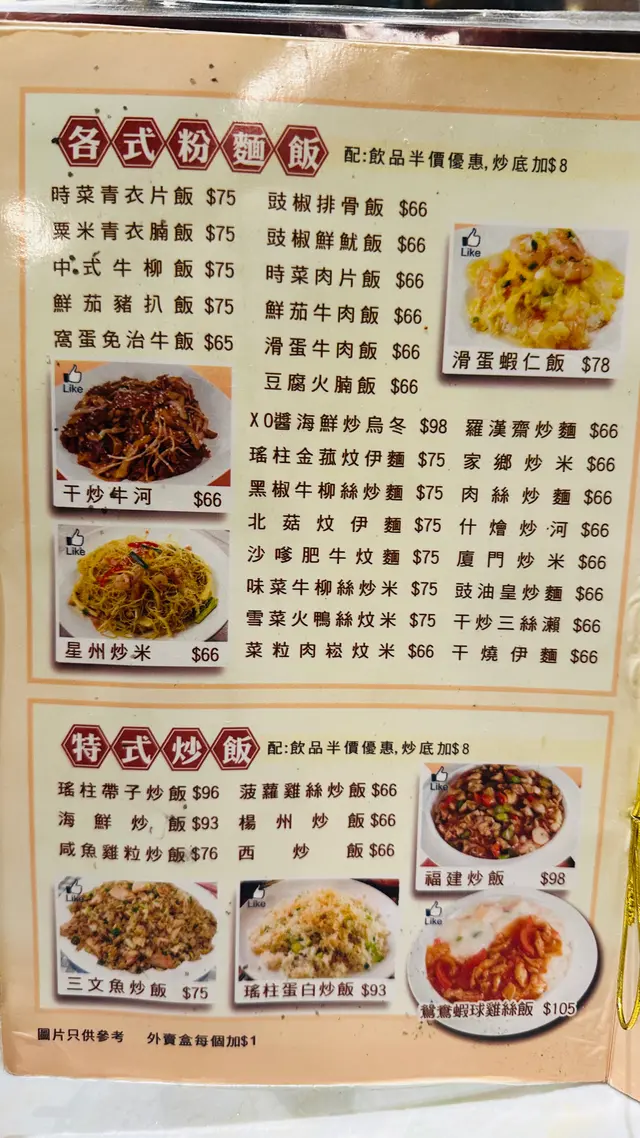 各式粉麵飯 配:飲品半價優惠,炒底加$8
時菜青衣片飯 $75
粟米青衣腩飯 $75
中式牛柳飯 $75
鮮茄豬扒飯 $75
窩蛋免治牛飯 $65
豉椒排骨飯 $66
豉椒鮮魷飯 $66
時菜肉片飯 $66
鮮茄牛肉飯 $66
滑蛋牛肉飯 $66
豆腐火腩飯 $66
Like
滑蛋蝦仁飯 $78
Like
干炒牛河 $66
Like
星州炒米 $66
XO醬海鮮炒烏冬 $98
瑤柱金菰炆伊麵 $75
黑椒牛柳絲炒麵 $75
北菇炆伊麵 $75
沙嗲肥牛炆麵 $75
味菜牛柳絲炒米 $75
雪菜火鴨絲炆米 $75
菜粒肉崧炆米 $66
羅漢齋炒麵 $66
家鄉炒米 $66
肉絲炒麵 $66
什燴炒河 $66
廈門炒米 $66
豉油皇炒麵 $66
干炒三絲瀨 $66
干燒伊麵 $66
特式炒飯 配:飲品半價優惠,炒底加$8
瑤柱帶子炒飯 $96
海鮮炒飯 $93
咸魚雞粒炒飯 $76
菠蘿雞絲炒飯 $66
楊州炒飯 $66
西炒飯 $66
Like
福建炒飯 $98
Like
三文魚炒飯 $75
Like
瑤柱蛋白炒飯 $93
Like
鴛鴦蝦球雞絲飯 $105
圖片只供參考 外賣盒每個加$1